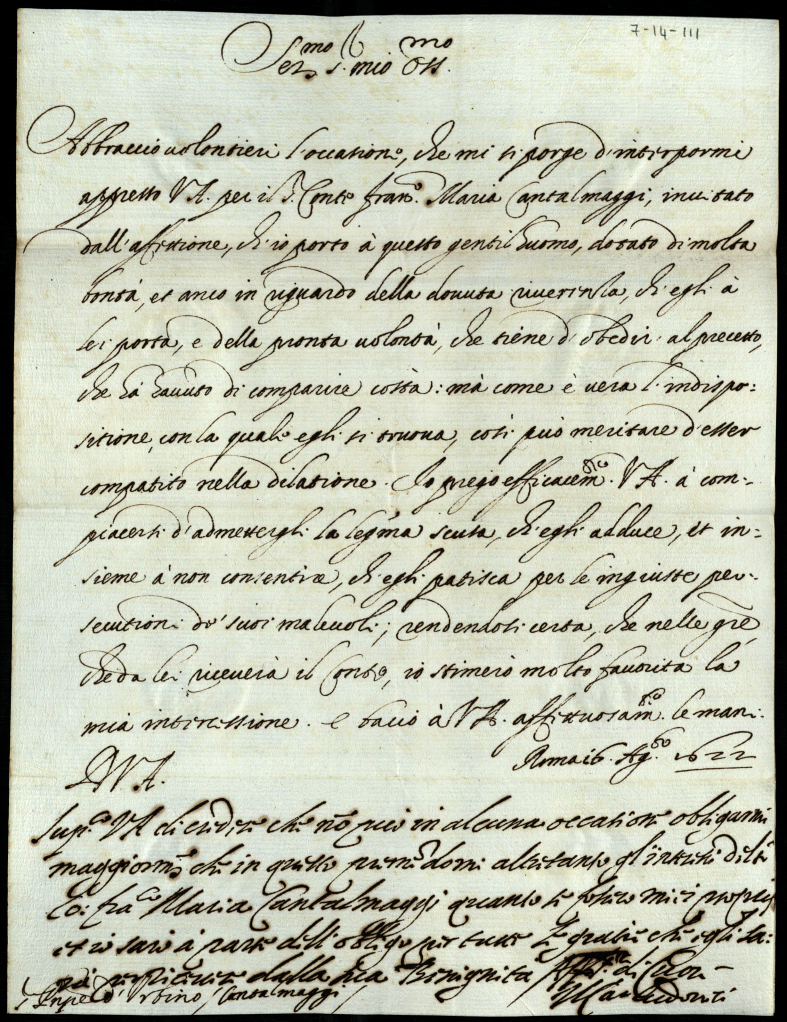 7-14-III
Ser.mo S.r mio Oss.mo
Abbraccio volontieri l'occatione, che mi si porge d'interpormi
appresso V.A. per il S. Conte Fran.o Maria Cantalmaggi, invitato
dall'affettione, ch'io porto à questo gentilhuomo, dotato di molta
bontà, et anco in riguardo della dovuta riverenza, ch'egli à
lei porta, e della pronta volontà, che tiene d'obedir al precetto,
che hà havuto di comparire costà: mà come è vera l'indispo-
sitione, con la quale egli si truova, così può meritare d'esser
compatito nella dilatione. Io prego efficacem.te V.A. à com-
piacersi d'admettergli la legma scusa, ch'egli adduce, et in-
sieme à non consentire, ch'egli patisca per le ingiuste per-
secutioni de' suoi malevoli; rendendosi certa, che nelle gre,
che da lei riceverà il Conte, io stimerò molto favorita la
mia intercessione. e bacio à V.A. affettuosam.te le mani.
Roma 16. Ag.to 1622
D V.A.
Sup.co VA di credere che nõ può in alcuna occatione obligarmi
maggiorm.te che in questo premẽdomi altretanto gl'intereti del
Co: Fra.co Maria Cantalmaggi quanto se fossero miei proprij
et io sarò à parte dell'obligo per tutte le gratie che egli sa:
rà per ricevere dalla sua Benignita
S. Prnpe d'Urbino / Cantalmaggi /